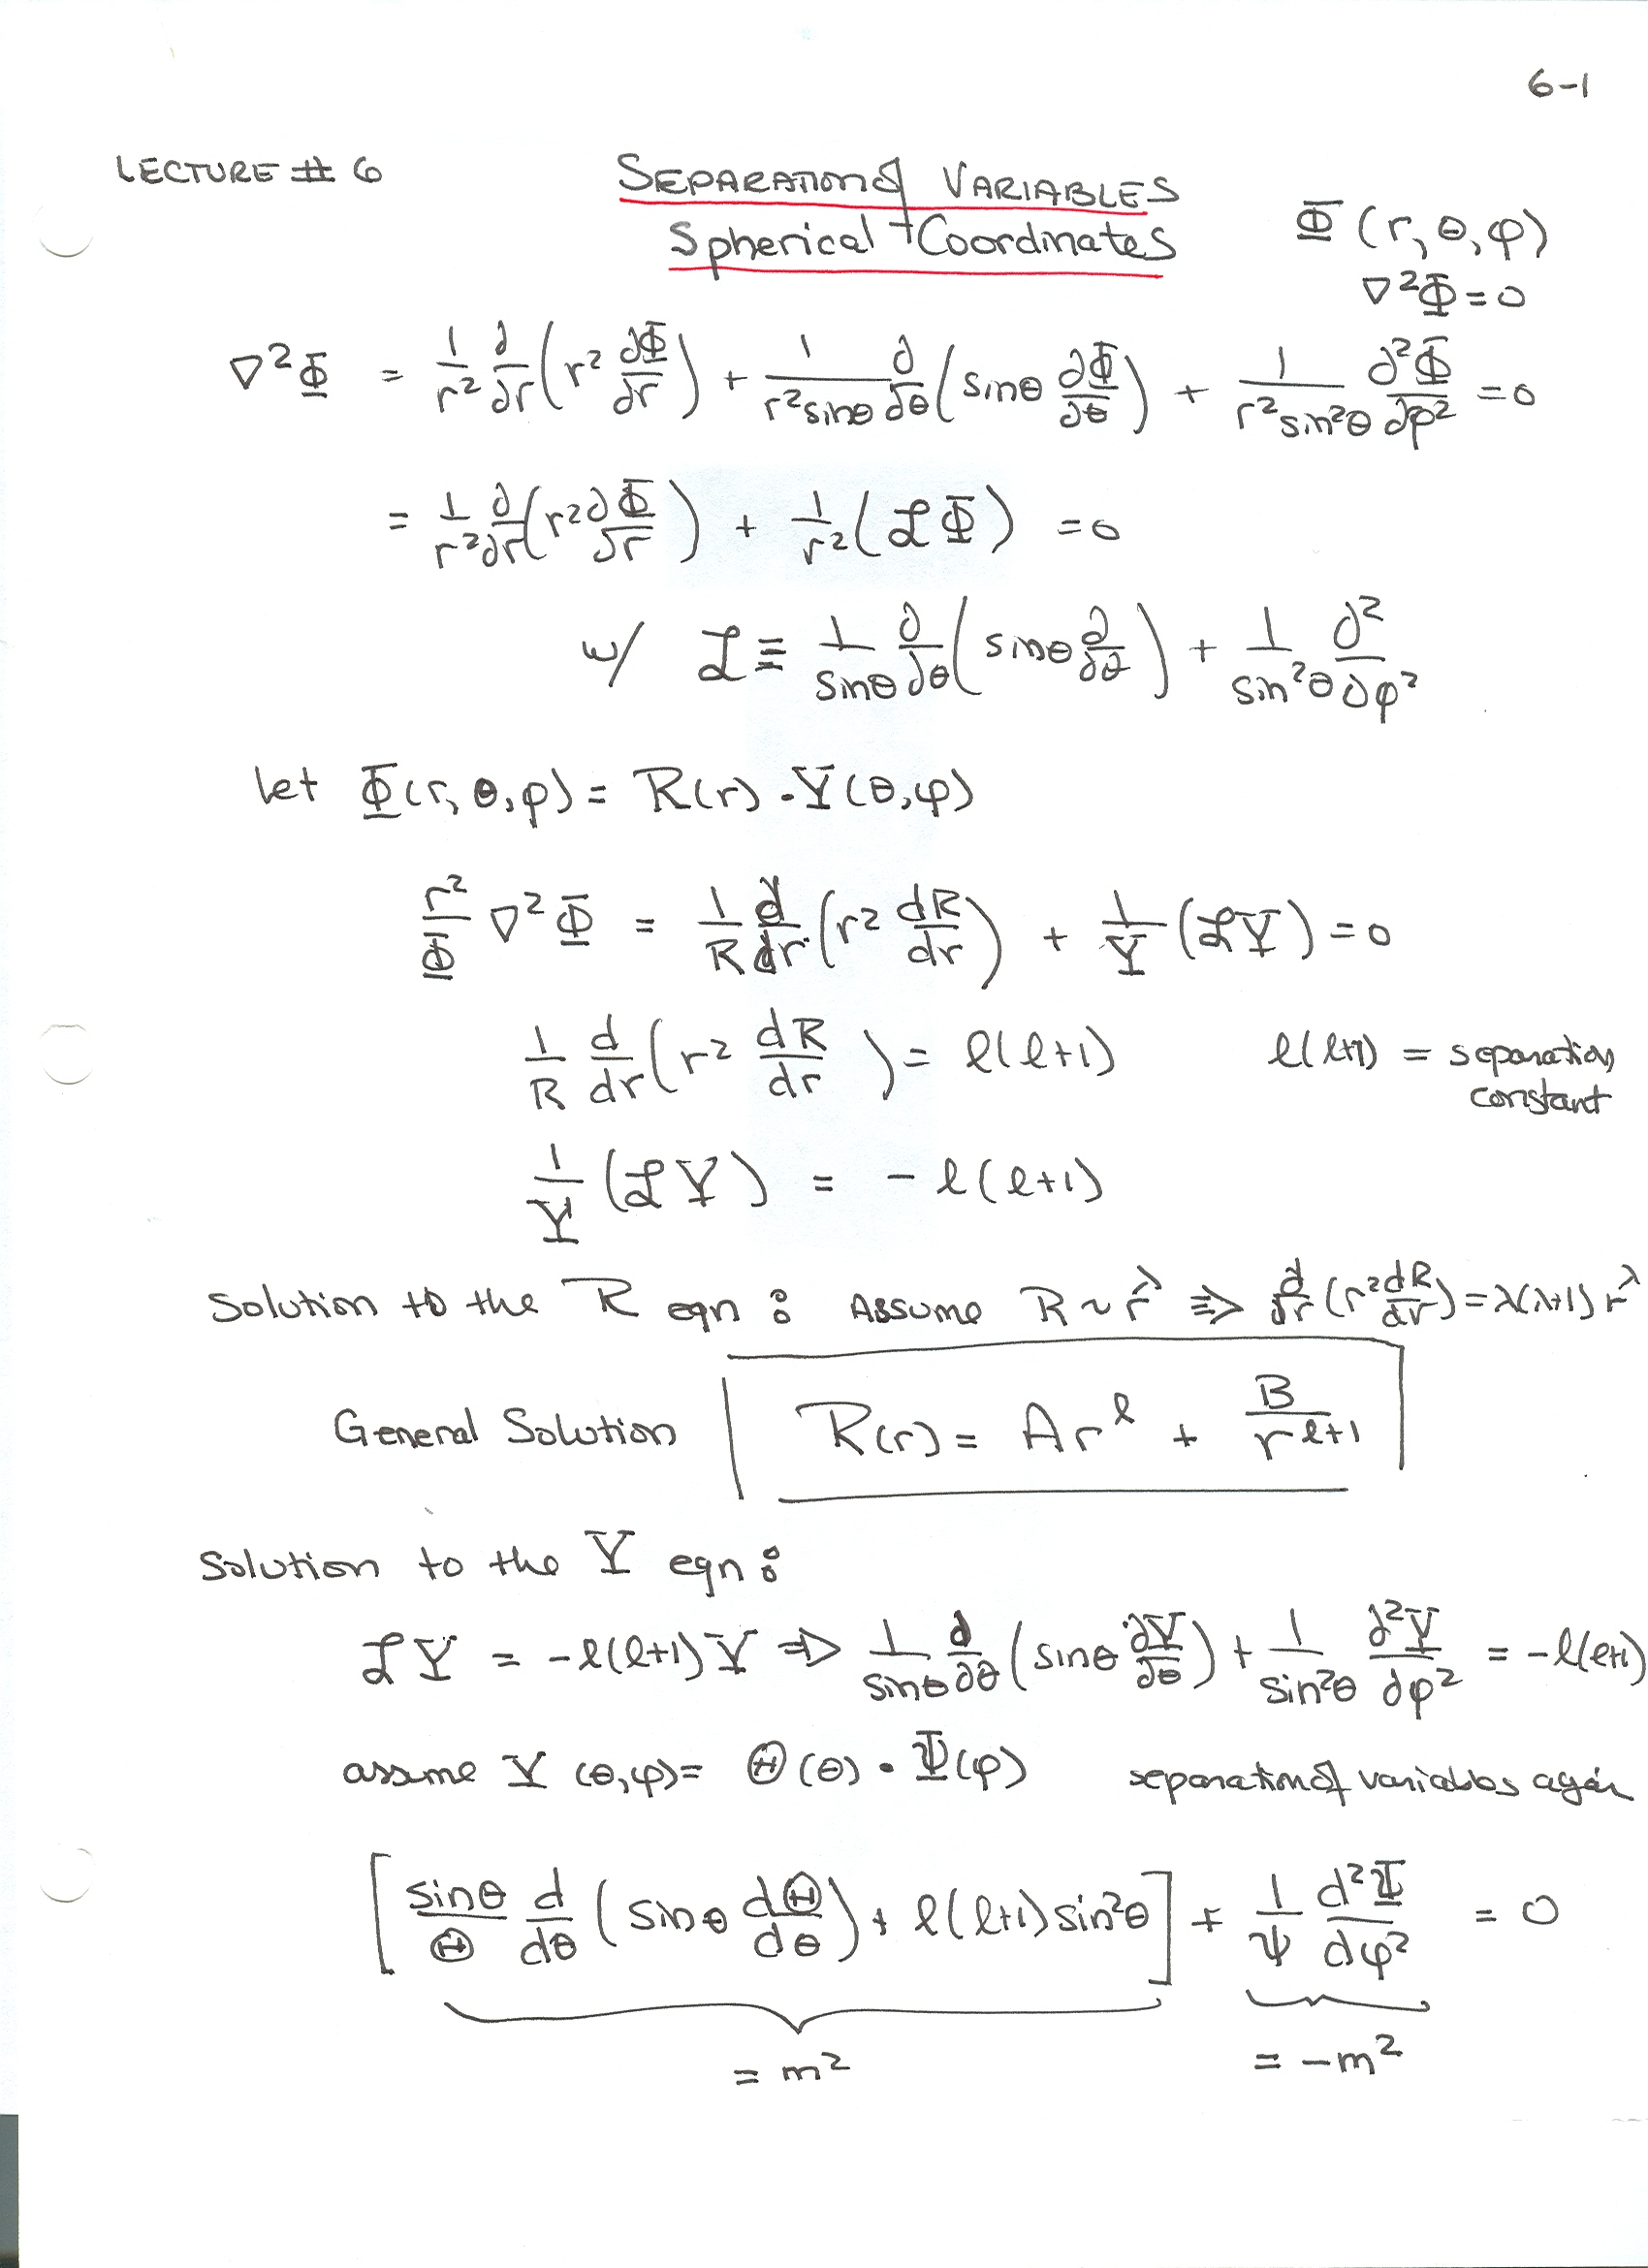 6-1
LECTURE # 6
SEPARATION of VARIABLES
Spherical Coordinates
Φ(r, θ, φ)
∇²Φ = 0
∇²Φ = 1/r² ∂/∂r (r² ∂Φ/∂r) + 1/(r² sinθ) ∂/∂θ (sinθ ∂Φ/∂θ) + 1/(r² sin²θ) ∂²Φ/∂φ² = 0
= 1/r² ∂/∂r (r² ∂Φ/∂r) + 1/r² (ℒΦ) = 0
w/ ℒ ≡ 1/sinθ ∂/∂θ (sinθ ∂/∂θ) + 1/sin²θ ∂²/∂φ²
let Φ(r, θ, φ) = R(r) · Y(θ, φ)
r²/Φ ∇²Φ = 1/R d/dr (r² dR/dr) + 1/Y (ℒY) = 0
1/R d/dr (r² dR/dr) = ℓ(ℓ+1) ℓ(ℓ+1) = separation
constant
1/Y (ℒY) = -ℓ(ℓ+1)
Solution to the R eqn : Assume R ~ r^λ ⇒ d/dr (r² dR/dr) = λ(λ+1) r^λ
General Solution R(r) = A r^ℓ + B/r^(ℓ+1)
Solution to the Y eqn :
ℒY = -ℓ(ℓ+1) Y ⇒ 1/sinθ ∂/∂θ (sinθ ∂Y/∂θ) + 1/sin²θ ∂²Y/∂φ² = -ℓ(ℓ+1)
assume Y(θ, φ) = Θ(θ) · Ψ(φ) separation of variables again
[sinθ/Θ d/dθ (sinθ dΘ/dθ) + ℓ(ℓ+1) sin²θ] + 1/Ψ d²Ψ/dφ² = 0
= m² = -m²